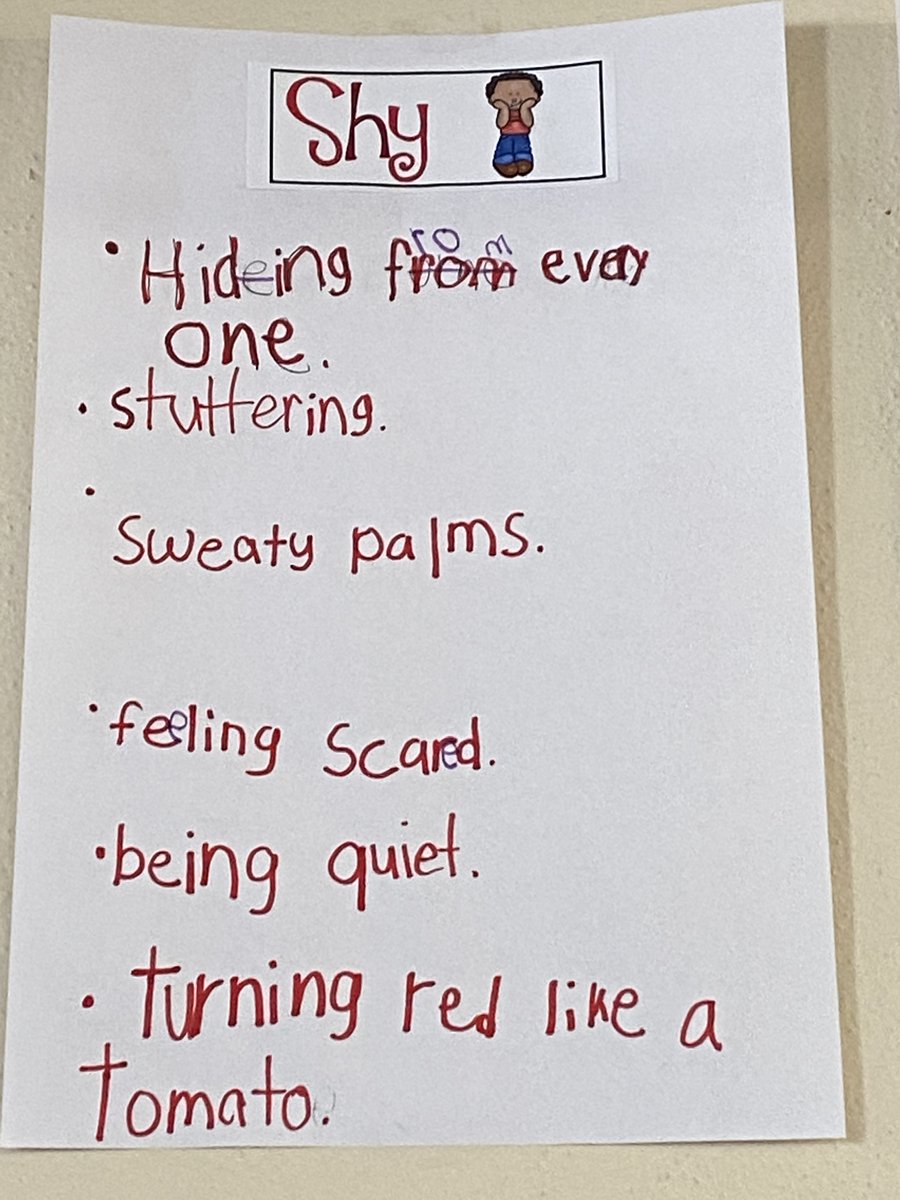 Shy
• Hideing from every
one.
• stuttering.
•
Sweaty palms.
• feeling Scared.
• being quiet.
• Turning red like a
Tomato.